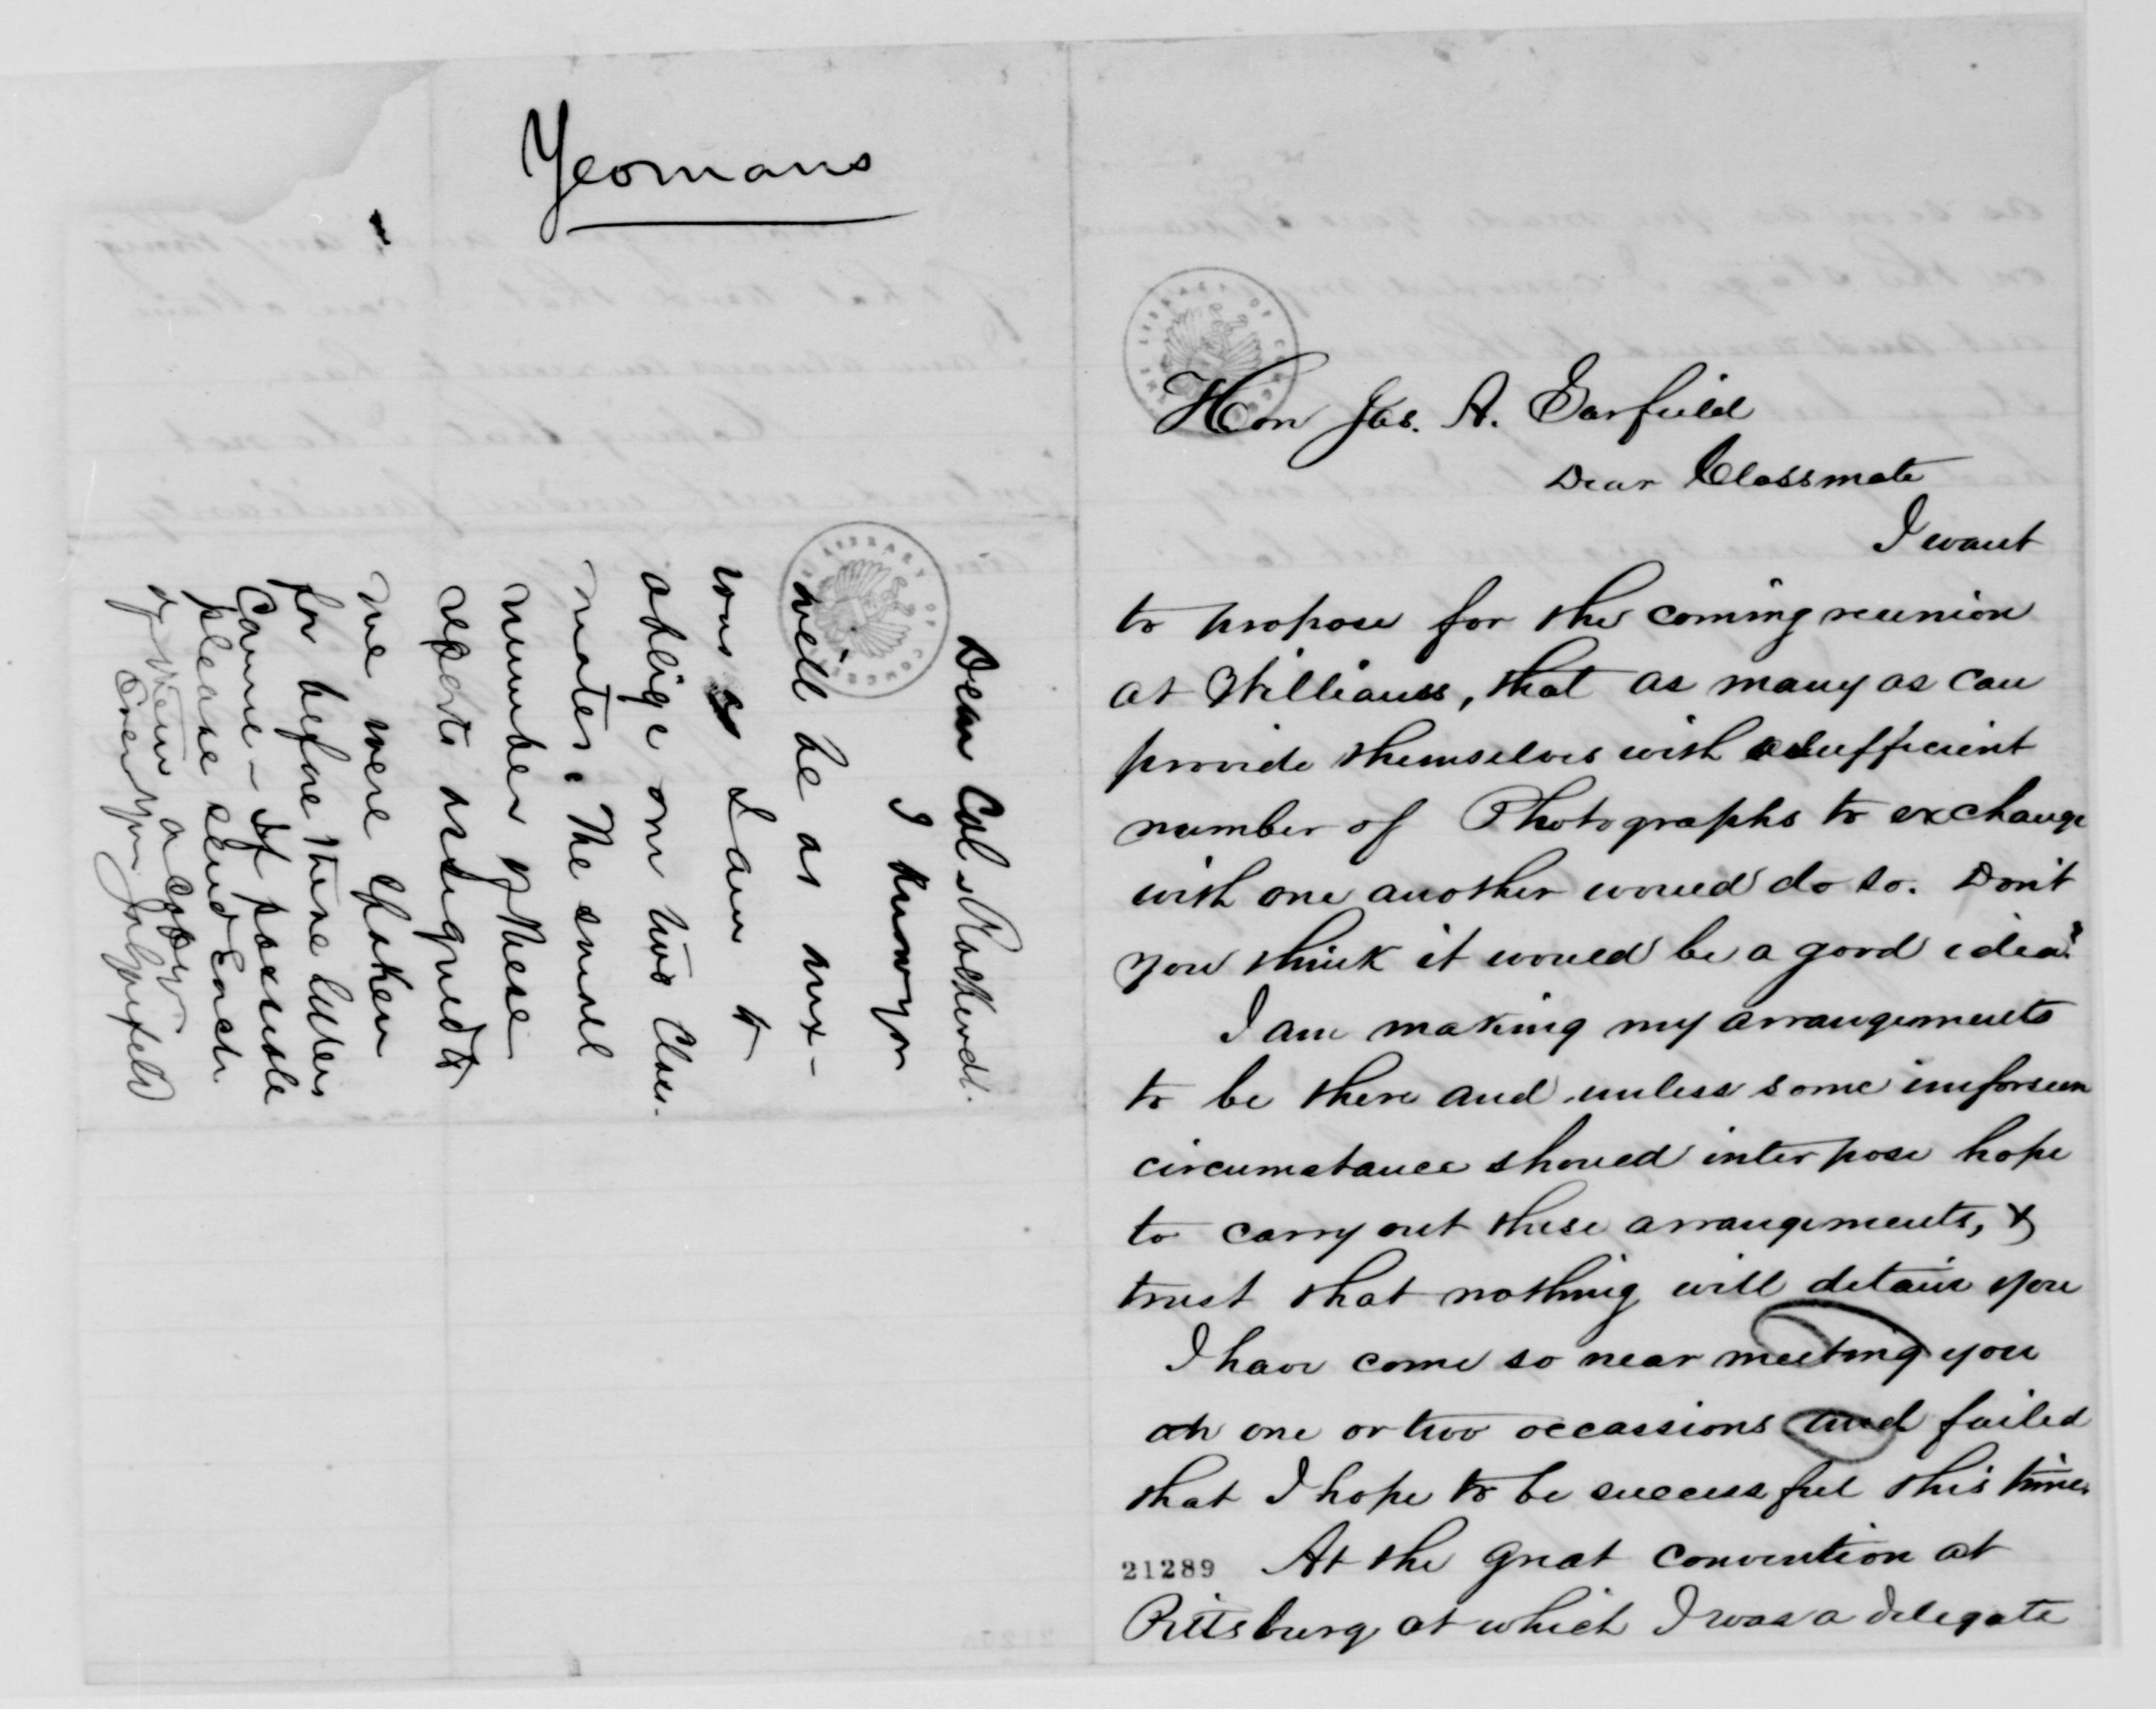 Yeomans
Dear Col. Rockwell.
I know you
will be as anx-
ious as I am to
oblige our two Class-
mates. The small
number of these
reports assigned to
me were spoken
for before these letters
came - If possible
please send each
of them a copy
Ever yours JAGarfield
Hon Jas. A. Garfield
Dear Classmate
I want
to propose for the coming reunion
at Williams, that as many as can
provide themselves with a sufficient
number of Photographs to exchange
with one another would do so. Don't
you think it would be a good idea?
I am making my arrangements
to be there and unless some unforseen
circumstance should interpose hope
to carry out these arrangements, &
trust that nothing will detain you
I have come so near meeting you
on one or two occassions and failed
that I hope to be successful this time.
21289 At the great convention at
Pittsburg at which I was a delegate